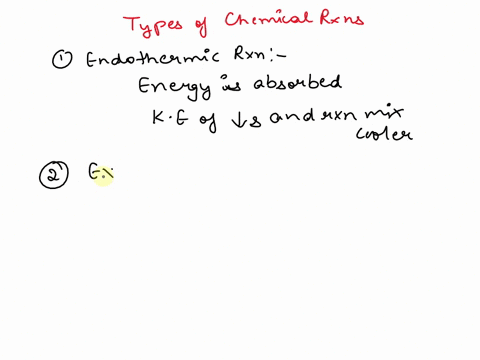 Types of Chemical Rxns
① Endothermic Rxn:-
Energy is absorbed
K.E of ↓s and rxn mix
cooler
② Ex